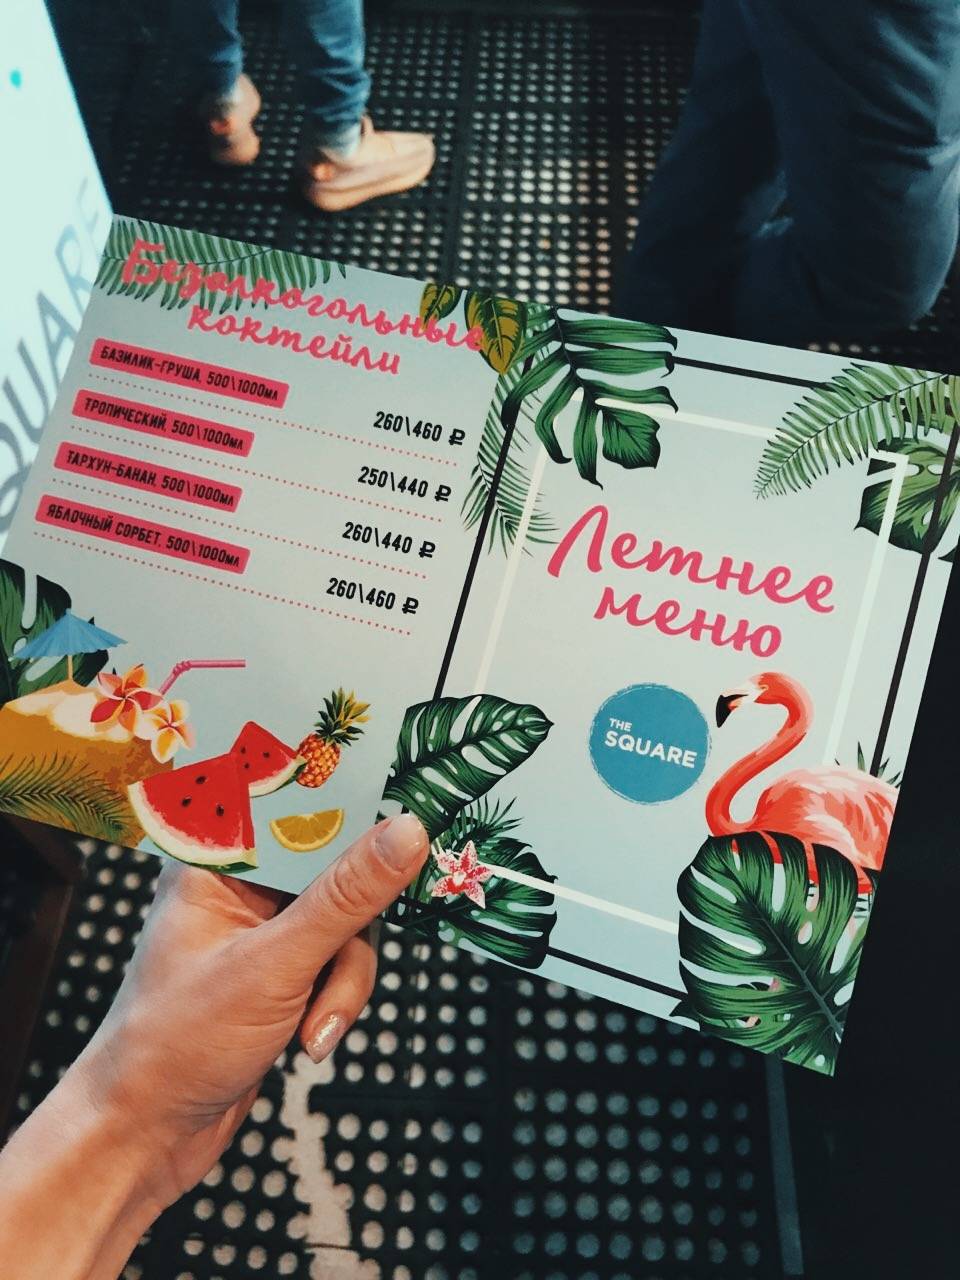 Безалкогольные
коктейли
БАЗИЛИК-ГРУША, 500\1000мл
260\460 ₽
ТРОПИЧЕСКИЙ, 500\1000мл
250\440 ₽
ТАРХУН-БАНАН, 500\1000мл
260\440 ₽
ЯБЛОЧНЫЙ СОРБЕТ, 500\1000мл
260\460 ₽
Летнее
меню
THE
SQUARE